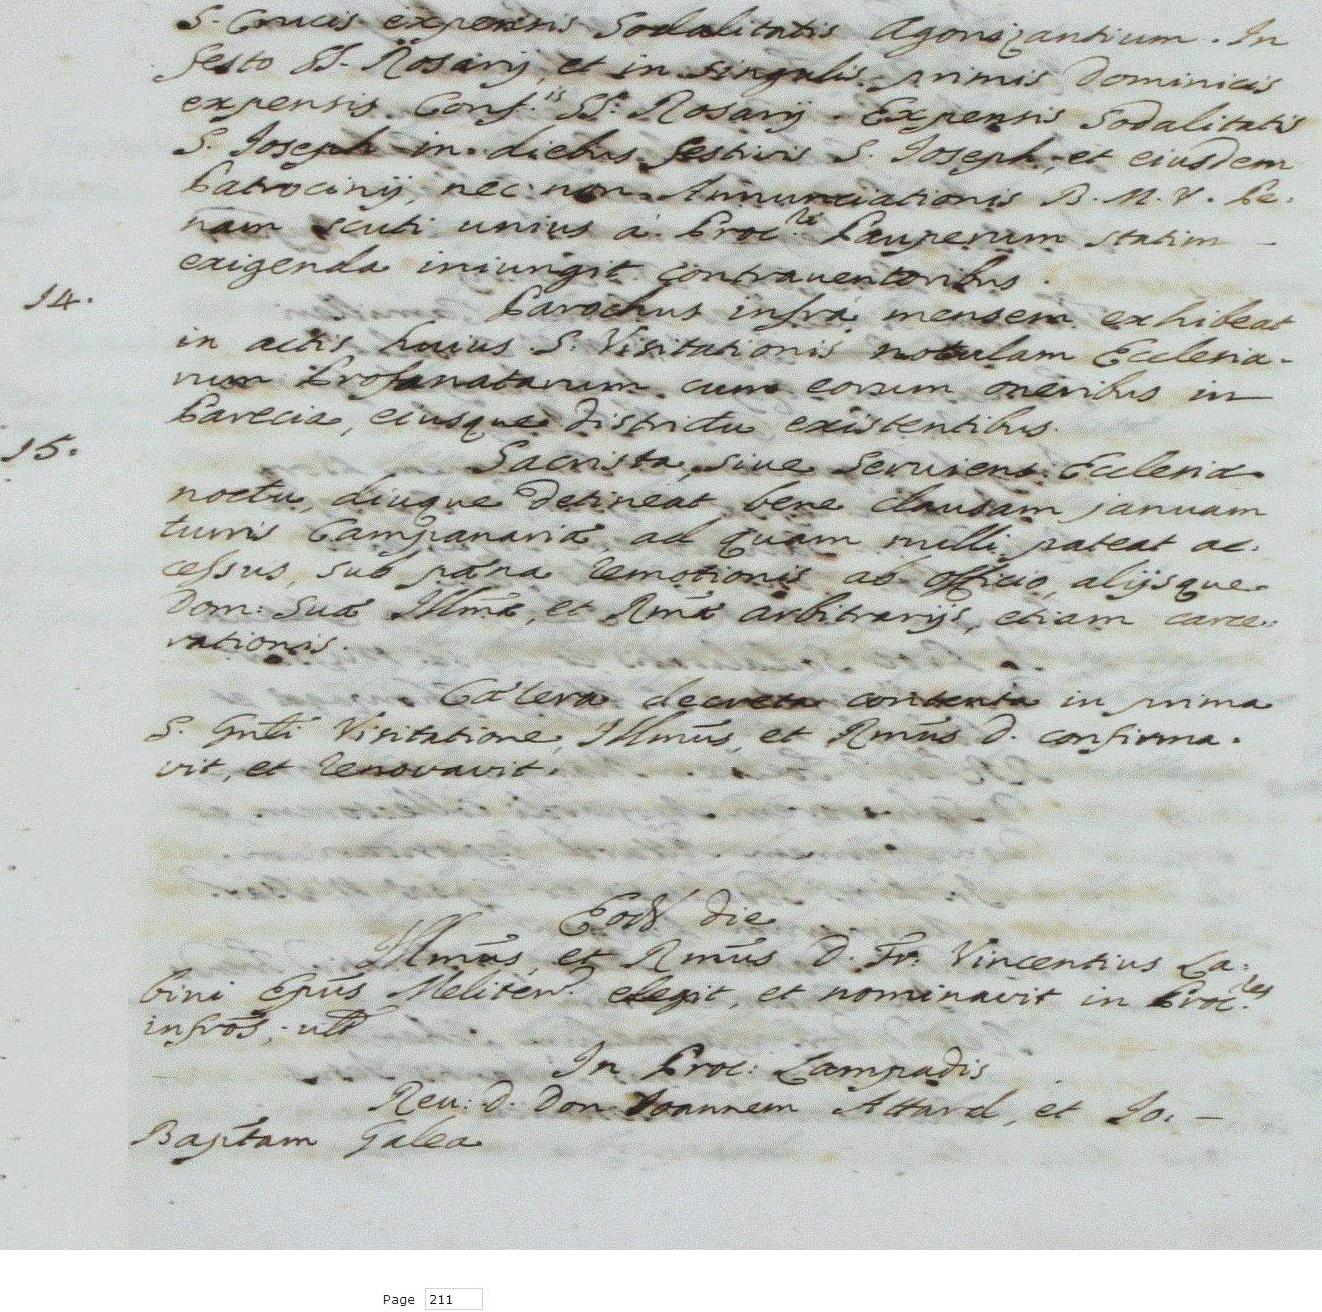 S. Crucis expensis Sodalitatis Agonizantium. In
festo SS. Rosarij, et in singulis primis Dominicis
expensis Conf.is SS. Rosarij. Expensis Sodalitatis
S. Joseph in diebus festivis S. Joseph, et eiusdem
Patrocinij, nec non Annunciationis B. M. V. Pæ-
nam scuti unius à Proc.re Pauperum statim
exigenda iniungit contraventoribus.
14. Parochus infrà mensem exhibeat
in actis huius S. Visitationis notulam Ecclesia-
rum Profanatarum cum eorum oneribus in
Parecia, eiusque districtu existentibus.
15. Sacrista, sive Serviens Ecclesiæ
noctu, diuque detineat bene clausam januam
turris Campanariæ ad quam nulli pateat ac-
cessus, sub pæna remotionis ab officio, alijsque
Dom: Suæ Illmæ, et Rmæ arbitrarijs, etiam carce-
rationis.
Cætera decreta contenta in prima
S. Gnli Visitatione, Illmus, et Rmus D. confirma-
vit, et renovavit.
Eod. die
Illmus, et Rmus D. Fr. Vincentius La-
bini Epus Meliten. elegit, et nominavit in Proc.res
infros, utt
In Proc: Lampadis
Reu: D. Don Joannem Attard, et Jo. —
Baptam Galea
Page 211